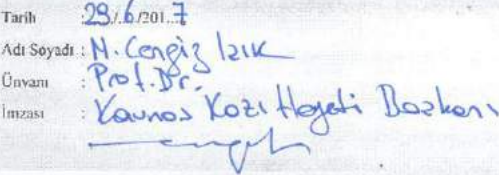 Tarih : 29/.6/201..7
Adı Soyadı : N. Cengiz Işık
Ünvanı : Prof. Dr.
İmzası : Kaunos Kazı Heyeti Başkanı